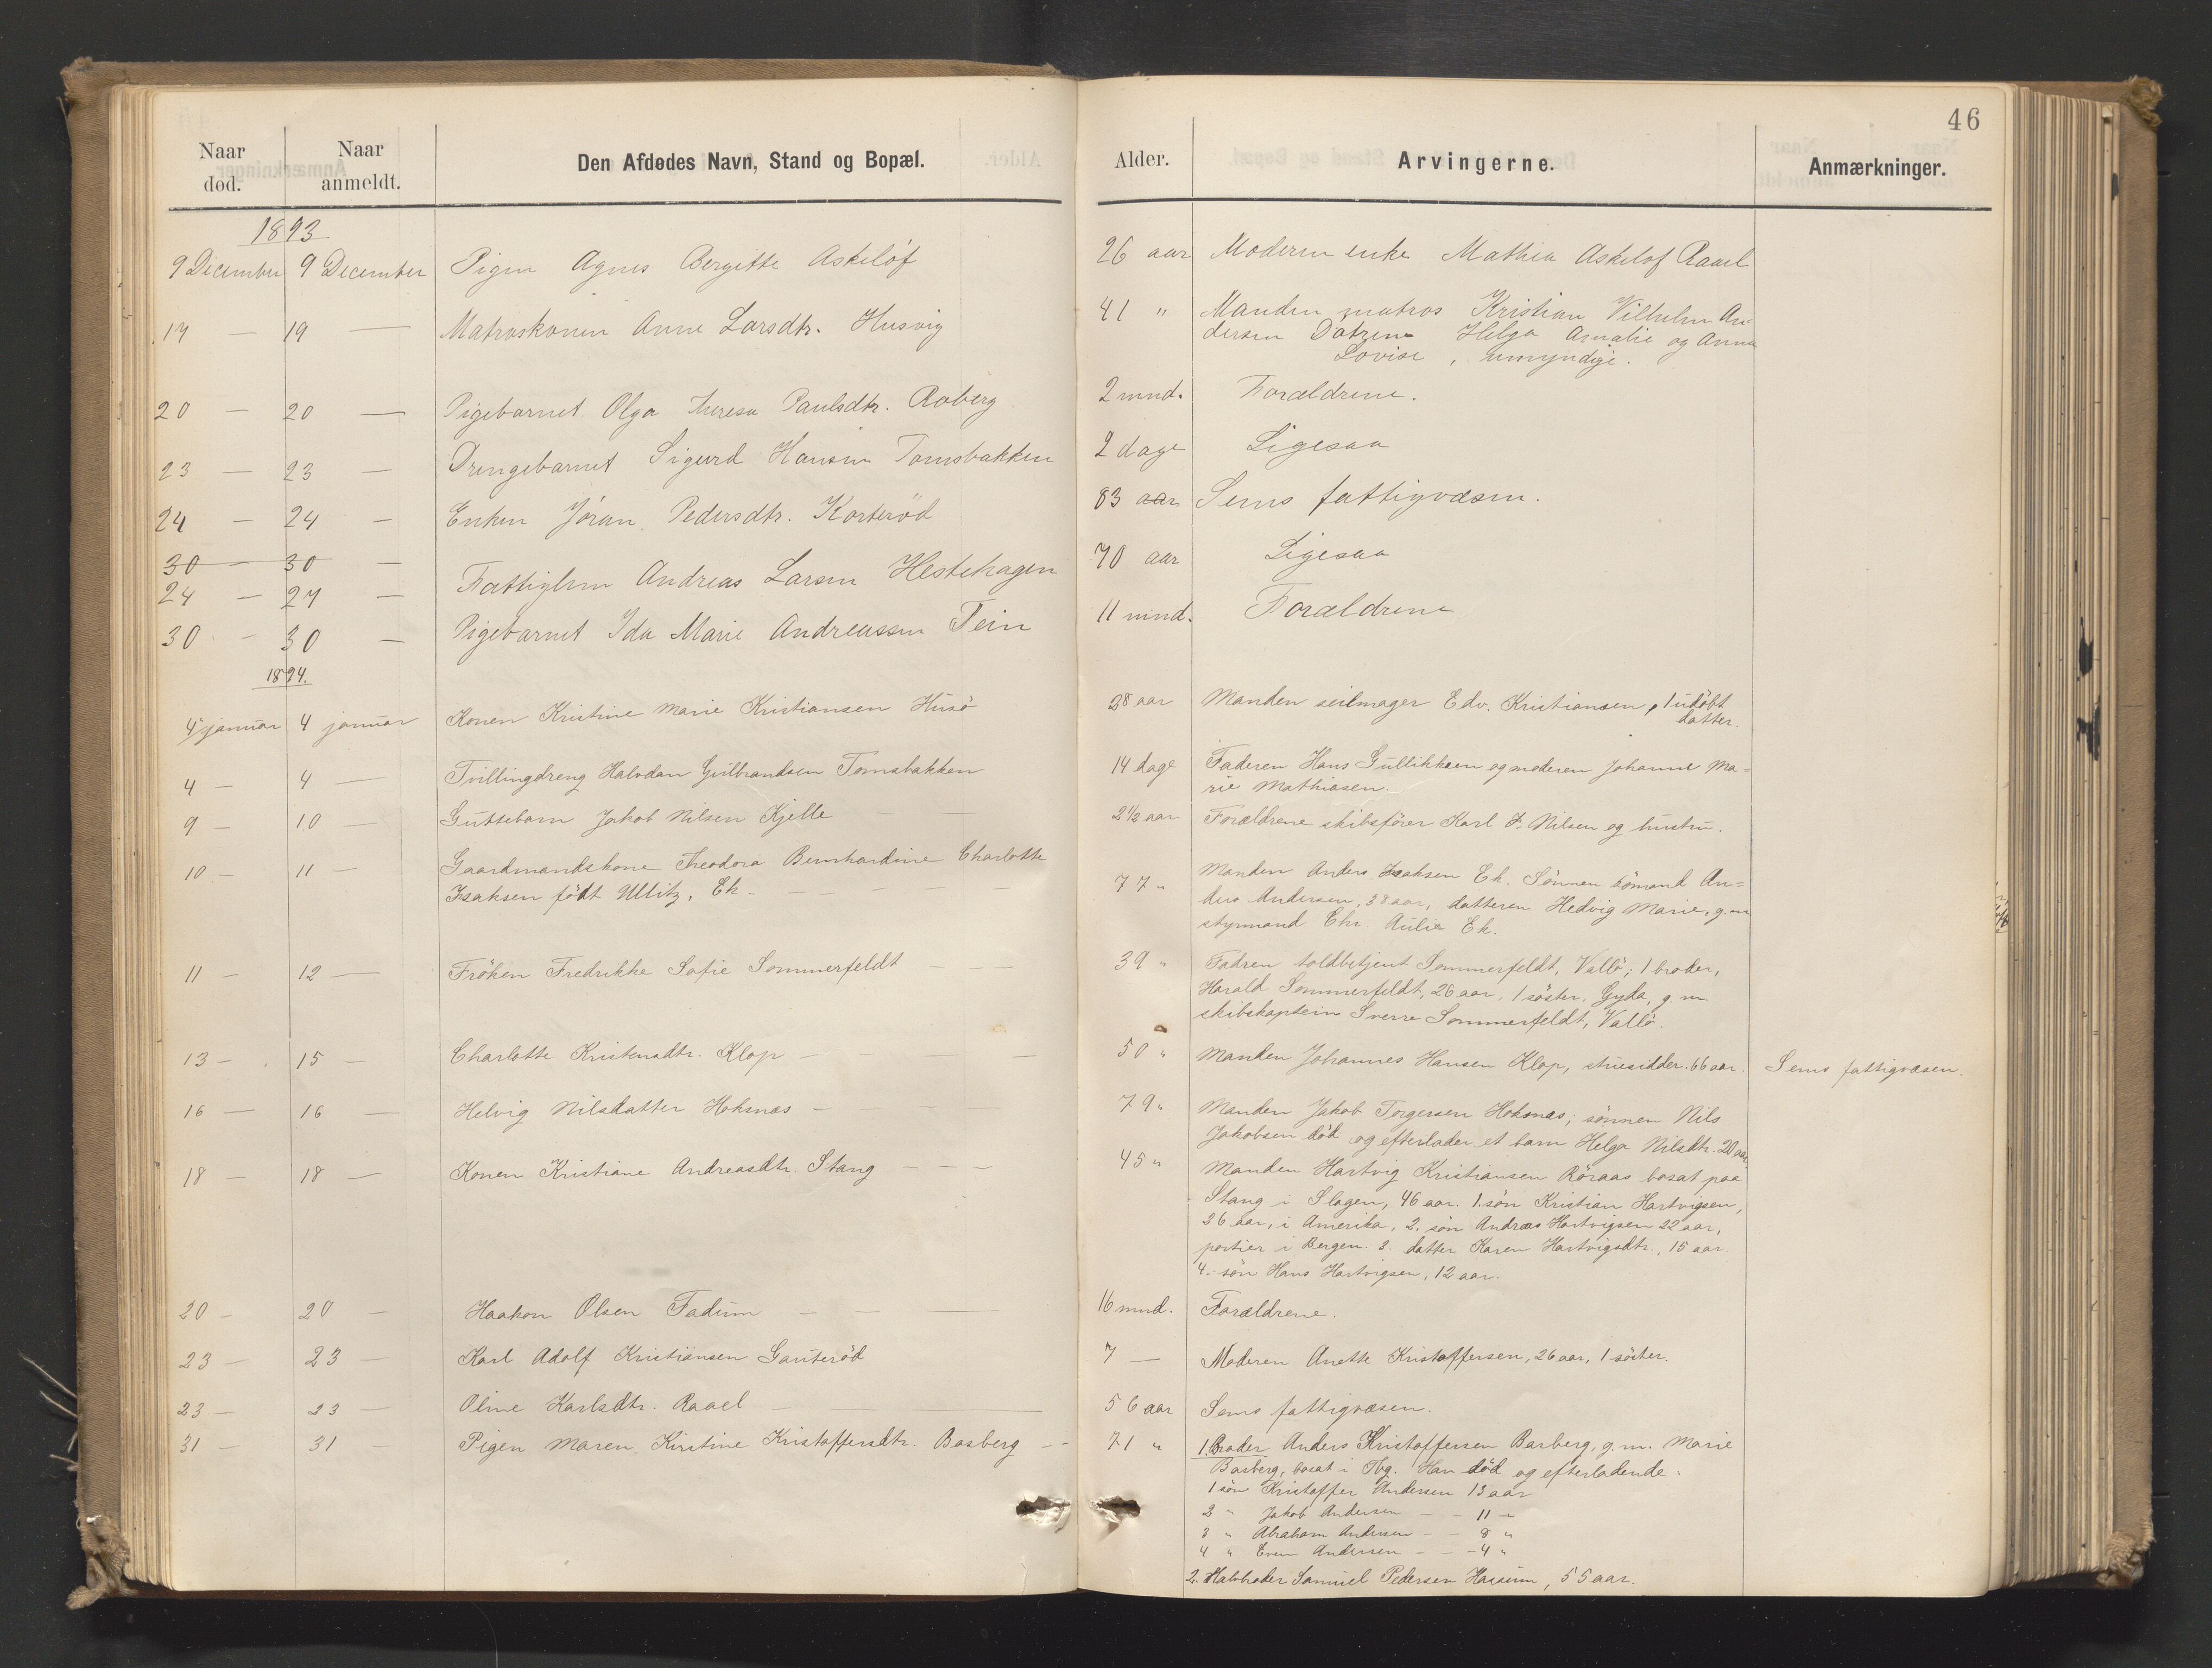 46
Naar død. Naar anmeldt. Den Afdødes Navn, Stand og Bopæl. Alder. Arvingerne. Anmærkninger.
1893
9 December 9 December Pigen Agnes Bergitte Askeløf 26 aar Moderen enke Mathea Askelof Raael
17 — 19 — Matroskonen Anne Larsdtr. Husvig 41 " Manden matros Kristian Vilhelm An-
dersen Døtrene Helga Amalie og Anna
Lovise, umyndige.
20 — 20 — Pigebarnet Olga Theresa Paulsdtr. Roberg 2 mnd. Forældrene.
23 — 23 — Drengebarnet Sigurd Hansen Tomsbakken 2 dage Ligesaa
24 — 24 — Enken Jøran Pedersdtr. Korterød 83 aar Sems fattigvæsen.
30 — 30 —
24 — 27 — Fattiglem Andreas Larsen Hestehagen 70 aar Ligesaa
30 — 30 — Pigebarnet Ida Marie Andreassen Tein 11 mnd. Forældrene
1894.
4 januar 4 januar Konen Kristine Marie Kristiansen Husø 38 aar Manden seilmager Edv. Kristiansen, 1 udøbt
datter.
4 — 4 — Tvillingdreng Halvdan Gulbrandsen Tomsbakken 14 dage Faderen Hans Gullikksen og moderen Johanne Ma=
rie Mathiasen.
9 — 10 — Guttebarn Jakob Nilsen Kjelle — — 2 1/2 aar Forældrene skibsfører Karl F. Nilsen og hustru.
10 — 11 — Gaardmandskone Theodora Bernhardine Charlotte
Isaksen født Ullitz, Ek — — — — 77 " Manden Anders Isaksen Ek. Sønnen sømand An=
ders Andersen, 38 aar, datteren Hedvig Marie, g.m
styrmand Chr. Aulie Ek.
11 — 12 — Frøken Fredrikke Sofie Sommerfeldt — — — 39 " Fadren toldbetjent Sommerfeldt, Vallø; 1 broder,
Harald Sommerfeldt, 26 aar, 1 søster, Gyda, g. m.
skibskaptein Sverre Sommerfeldt, Vallø.
13 — 15 — Charlotte Kristensdtr. Klop — — — 50 " Manden Johannes Hansen Klop, stuesidder. 66 aar. Sems fattigvæsen.
16 — 16 — Helvig Nilsdatter Hoksnæs — — — 79 " Manden Jakob Torgersen Hoksnæs; sønnen Nils
Jakobsen død og efterlader et barn Helga Nilsdtr. 20 aar.
18 — 18 — Konen Kristiane Andreasdtr. Stang — — — 45 " Manden Hartvig Kristiansen Røraas bosat paa
Stang i Slagen, 46 aar. 1. søn Kristian Hartvigsen,
26 aar, i Amerika, 2. søn Andreas Hartvigsen 22 aar,
portier i Bergen. 3. datter Karen Hartvigsdtr., 15 aar.
4. søn Hans Hartvigsen, 12 aar.
20 — 20 — Haakon Olsen Fadum — — — 16 mnd. Forældrene.
23 — 23 — Karl Adolf Kristiansen Gauterød 7 — Moderen Anette Kristoffersen, 26 aar, 1 søster.
23 — 23 — Oline Karlsdtr. Raael — — — 56 aar Sems fattigvæsen.
31 — 31 — Pigen Maren Kirstine Kristoffersdtr. Basberg — — 71 " 1. Broder Anders Kristoffersen Basberg, g. m. Marie
Basberg, bosat i Tbg. Han død og efterladende:
1 søn Kristoffer Andersen 13 aar
2 " Jakob Andersen — — 11 "
3 " Abraham Andersen — — 8 "
4 " Even Andersen — — 4 "
2. Halvbroder Samuel Pedersen Hassum, 55 aar.